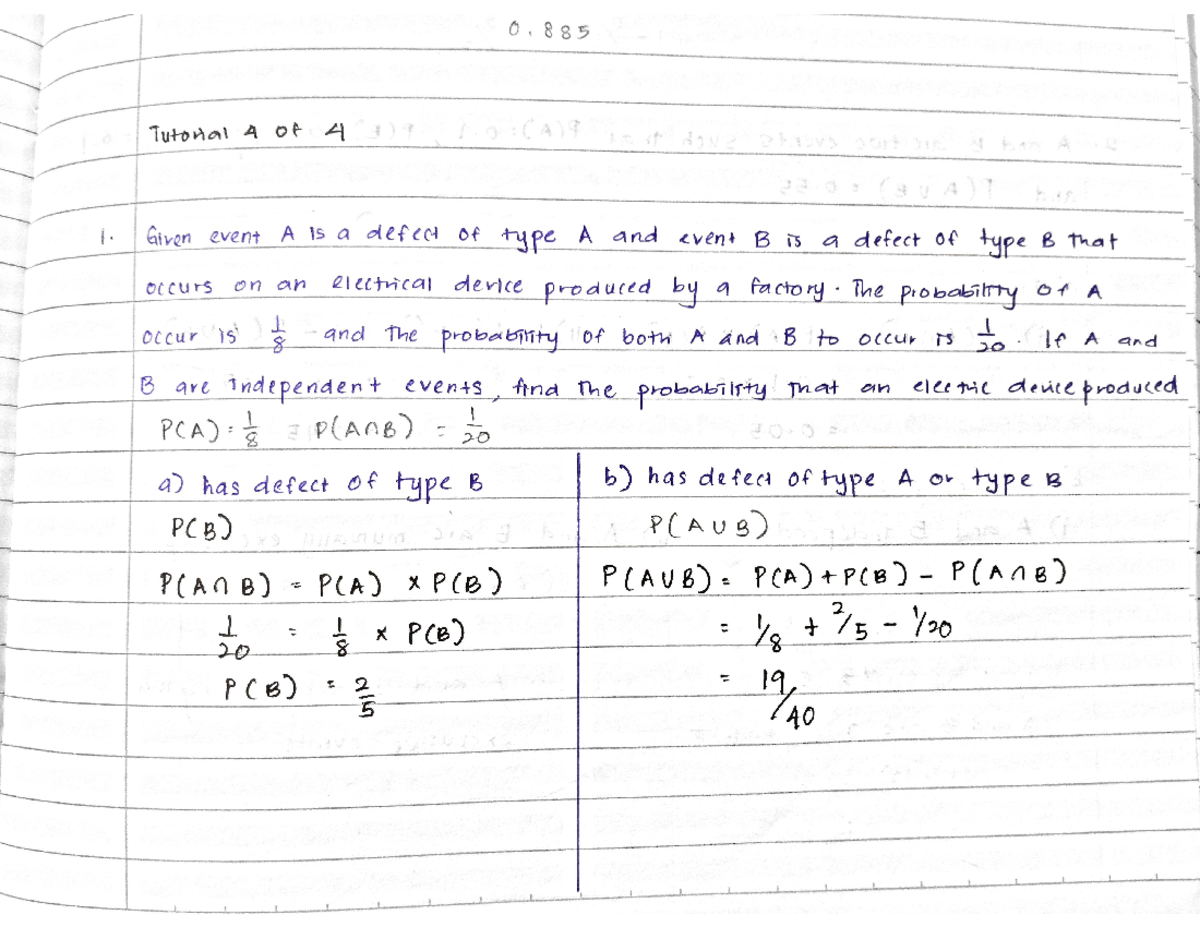 0.885
Tutorial 4 of 4
1. Given event A is a defect of type A and event B is a defect of type B that
occurs on an electrical device produced by a factory. The probability of A
occur is 1/8 and the probability of both A and B to occur is 1/20. If A and
B are independent events, find the probability that an electric device produced
P(A) = 1/8 P(A∩B) = 1/20
a) has defect of type B
P(B)
P(A∩B) = P(A) × P(B)
1/20 = 1/8 × P(B)
P(B) = 2/5
b) has defect of type A or type B
P(A∪B)
P(A∪B) = P(A) + P(B) - P(A∩B)
= 1/8 + 2/5 - 1/20
= 19/40